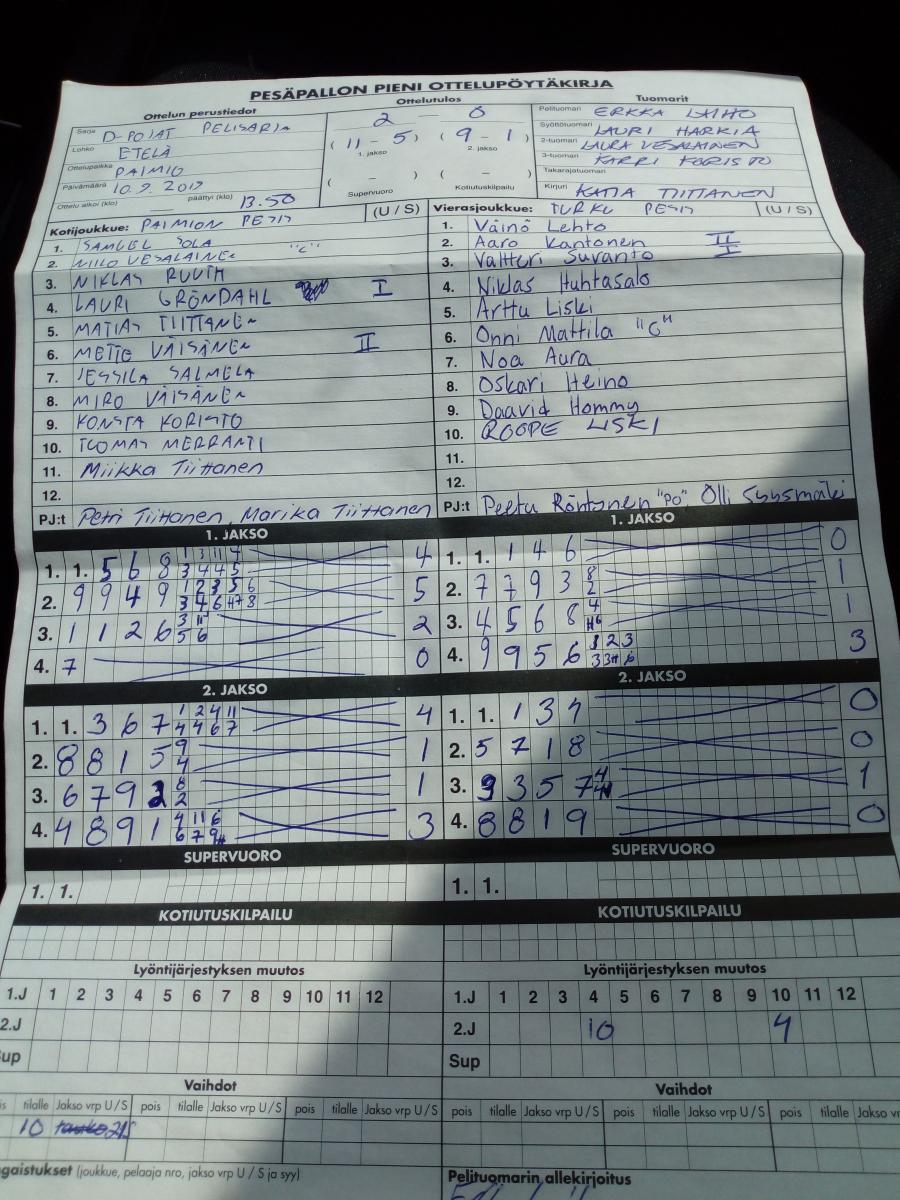 PESÄPALLON PIENI OTTELUPÖYTÄKIRJA
Ottelun perustiedot
Ottelutulos
Tuomarit
Sarja D-POJAT PELISARJA
Lohko ETELÄ
Ottelupaikka PAIMIO
Päivämäärä
Ottelu alkoi (klo) päättyi (klo) 13.50
2 - 0
( 11 - 5 ) ( 9 - 1 )
1. jakso 2. jakso
( - ) ( - )
Supervuoro Kotiutuskilpailu
Pelituomari ERKKA LAIHO
Syöttötuomari LAURI HARKIA
2-tuomari LAURA VESALAINEN
3-tuomari KARRI KORISTO
Takarajatuomari
Kirjuri KATJA TIITTANEN
Kotijoukkue: PAIMION PESIS (U / S)
1. SAMUEL SOLA
2. NIILO VESALAINEN "C"
3. NIKLAS RUUTH
4. LAURI GRÖNDAHL I
5. MATIAS TIITTANEN
6. VÄISÄNEN II
7. SALMELA
8. MIRO VÄISÄNEN
9. KONSTA KORISTO
10. TUOMAS MERRANTI
11. Miikka Tiittanen
12.
PJ:t Petri Tiittanen, Marika Tiittanen
Vierasjoukkue: TURKU PESIS (U / S)
1. Väinö Lehto
2. Aaro Kantonen II
3. Valtteri Suvanto I
4. Niklas Huhtasalo
5. Arttu Liski
6. Onni Mattila "C"
7. Noa Aura
8. Oskari Heino
9. Daavid Hommy
10. ROOPE LISKI
11.
12.
PJ:t Peetu Röntynen "PO" Olli Syysmäki
1. JAKSO
1. 1. 5 6 8 4
2. 9 9 4 9 5
3. 1 1 2 6 2
4. 7 0
1. JAKSO
1. 1. 1 4 6 0
2. 7 7 9 3 8 2 1
3. 4 5 6 8 1
4. 9 9 5 6 3
2. JAKSO
1. 1. 3 6 7 1 2 4 11 4 4 6 7 4
2. 8 8 1 5 9 4 1
3. 6 7 9 2 8 2 1
4. 4 8 9 1 3
2. JAKSO
1. 1. 1 3 4 0
2. 5 7 1 8 0
3. 9 3 5 7 1
4. 8 8 1 9 0
SUPERVUORO
1. 1.
SUPERVUORO
1. 1.
KOTIUTUSKILPAILU
KOTIUTUSKILPAILU
Lyöntijärjestyksen muutos
1.J 1 2 3 4 5 6 7 8 9 10 11 12
2.J
Sup
Lyöntijärjestyksen muutos
1.J 1 2 3 4 5 6 7 8 9 10 11 12
2.J 10 4
Sup
Vaihdot
tilalle Jakso vrp U / S pois tilalle Jakso vrp U / S pois tilalle Jakso vrp U / S
10
Vaihdot
pois tilalle Jakso vrp U / S pois tilalle Jakso vrp U / S pois tilalle
(joukkue, pelaaja nro, jakso vrp U / S ja syy)
Pelituomarin allekirjoitus